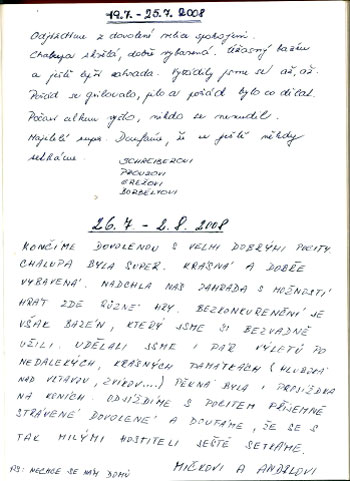 19.7. - 25.7. 2008
Odjíždíme z dovolené velice spokojení.
Chalupa skvělá, dobře vybavená. Úžasný bazén
a ještě lepší zahrada. Vyřádily jsme se až, až.
Pořád se grilovalo, pilo a pořád bylo co dělat.
Počasí celkem vyšlo, nikdo se nenudil.
Majitelé super. Doufáme, že se ještě někdy
setkáme.
SCHREIBEROVI
PROUZOVI
BORBÉLYOVI
26.7. - 2.8. 2008
KONČÍME DOVOLENOU S VELMI DOBRÝMI POCITY.
CHALUPA BYLA SUPER. KRÁSNÁ A DOBŘE
VYBAVENÁ. NADCHLA NÁS ZAHRADA S MOŽNOSTÍ
HRÁT ZDE RŮZNÉ HRY. BEZKONKURENČNÍ JE
VŠAK BAZÉN, KTERÝ JSME SI BEZVADNĚ
UŽILI. UDĚLALI JSME I PÁR VÝLETŮ PO
NEDALEKÝCH, KRÁSNÝCH PAMÁTKÁCH (HLUBOKÁ
NAD VLTAVOU, ZVÍKOV...) PĚKNÁ BYLA I PROJÍŽĎKA
NA KONÍCH. ODJÍŽDÍME S POCITEM PŘÍJEMNĚ
STRÁVENÉ DOVOLENÉ A DOUFÁME, ŽE SE S
TAK MILÝMI HOSTITELI JEŠTĚ SETKÁME.
PS: NECHCE SE NÁM DOMŮ MIČKOVI A ANDĚLOVI